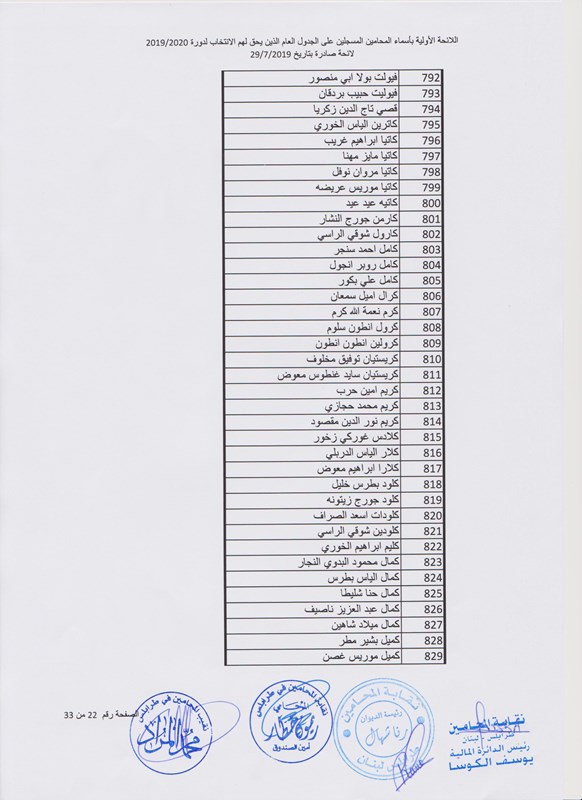 اللائحة الأولية بأسماء المحامين المسجلين على الجدول العام الذين يحق لهم الانتخاب لدورة 2019/2020
لائحة صادرة بتاريخ 29/7/2019
792 فيولت بولا ابي منصور
793 فيوليت حبيب بردقان
794 قصي تاج الدين زكريا
795 كاترين الياس الخوري
796 كاتيا ابراهيم غريب
797 كاتيا مايز مهنا
798 كاتيا مروان نوفل
799 كاتيا موريس عريضه
800 كاتيه عيد عيد
801 كارمن جورج النشار
802 كارول شوقي الراسي
803 كامل احمد سنجر
804 كامل روبر انجول
805 كامل علي بكور
806 كرال اميل سمعان
807 كرم نعمة الله كرم
808 كرول انطون سلوم
809 كرولين انطون انطون
810 كريستيان توفيق مخلوف
811 كريستيان سايد غنطوس معوض
812 كريم امين حرب
813 كريم محمد حجازي
814 كريم نور الدين مقصود
815 كلادس غوركي زخور
816 كلار الياس الدربلي
817 كلارا ابراهيم معوض
818 كلود بطرس خليل
819 كلود جورج زيتونه
820 كلودات اسعد الصراف
821 كلودين شوقي الراسي
822 كليم ابراهيم الخوري
823 كمال محمود البدوي النجار
824 كمال الياس بطرس
825 كمال حنا شليطا
826 كمال عبد العزيز ناصيف
827 كمال ميلاد شاهين
828 كميل بشير مطر
829 كميل موريس غصن
الصفحة رقم 22 من 33
نقيب المحامين في طرابلس
محمد المراد
نقابة المحامين في طرابلس
المحامي
أمين الصندوق
نقابة المحامين
رئيسة الديوان
رنا شهال
طرابلس لبنان
نقابة المحامين
طرابلس - لبنان
رئيس الدائرة المالية
يوسف الكوسا